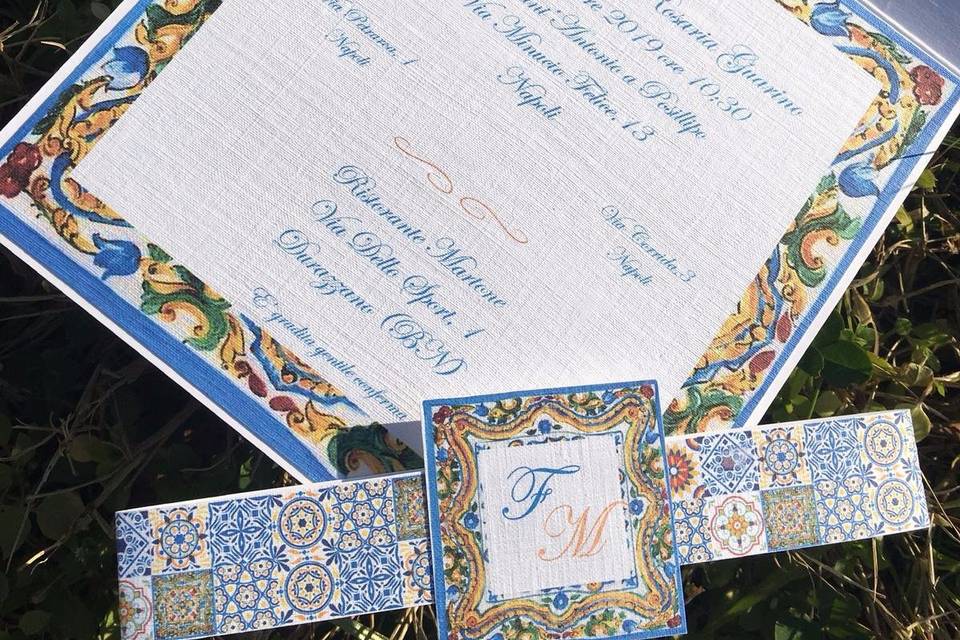 Rosaria Guarino
2019 ore 10:30
Sant'Antonio a Posillipo
Via Minucio Felice, 13
Napoli
1
Napoli
Ristorante Martone
Via Dello Sport, 1
Durazzano (BN)
Via Cornelia, 3
Napoli
E' gradita gentile conferma
F
M